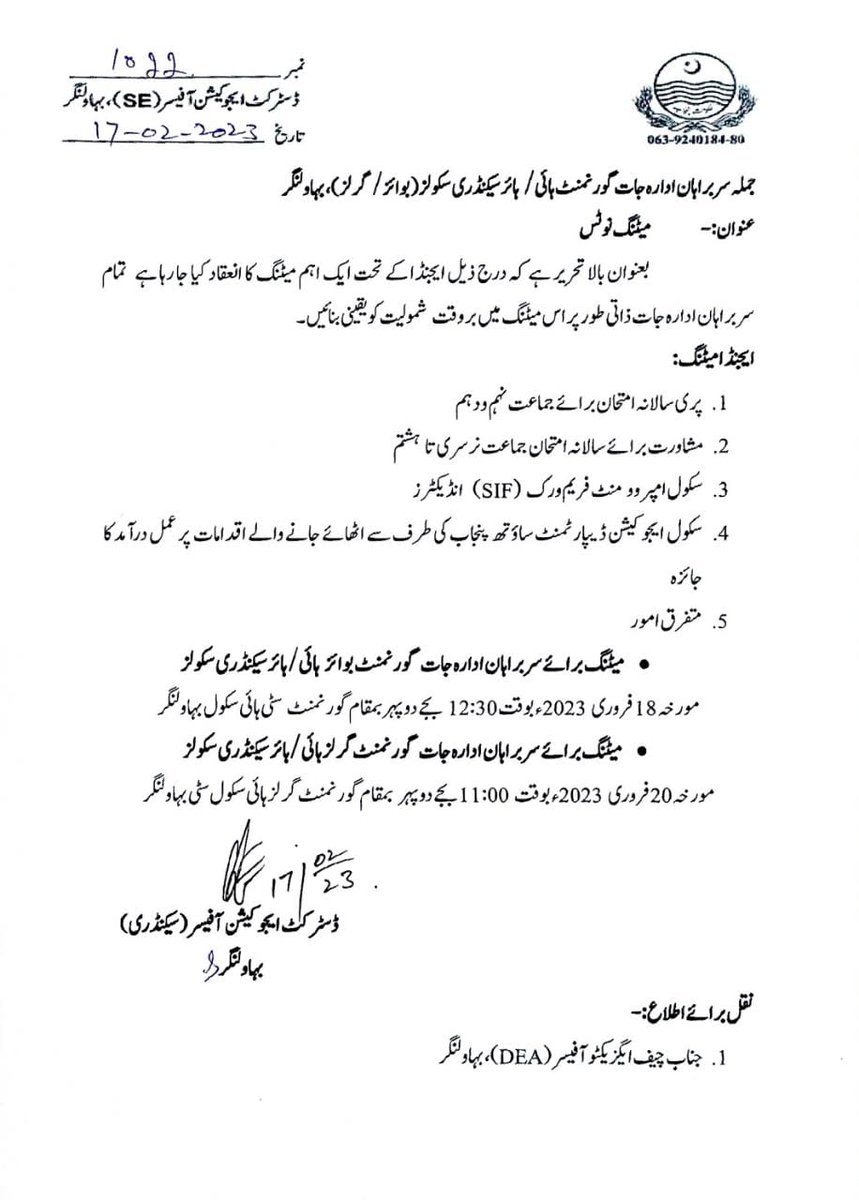 نمبر 1022
ڈسٹرکٹ ایجوکیشن آفیسر (SE)، بہاولنگر
تاریخ 17-02-2023
063-9240184-80
جملہ سربراہان ادارہ جات گورنمنٹ ہائی / ہائر سیکنڈری سکولز (بوائز / گرلز)، بہاولنگر
عنوان:- میٹنگ نوٹس
بعنوان بالا تحریر ہے کہ درج ذیل ایجنڈا کے تحت ایک اہم میٹنگ کا انعقاد کیا جا رہا ہے تمام
سربراہان ادارہ جات ذاتی طور پر اس میٹنگ میں بروقت شمولیت کو یقینی بنائیں۔
ایجنڈا میٹنگ:
1. پری سالانہ امتحان برائے جماعت نہم و دہم
2. مشاورت برائے سالانہ امتحان جماعت نرسری تا ہشتم
3. سکول امپروومنٹ فریم ورک (SIF) انڈیکٹرز
4. سکول ایجوکیشن ڈیپارٹمنٹ ساؤتھ پنجاب کی طرف سے اٹھائے جانے والے اقدامات پر عمل درآمد کا
جائزہ
5. متفرق امور
• میٹنگ برائے سربراہان ادارہ جات گورنمنٹ بوائز ہائی/ہائر سیکنڈری سکولز
مورخہ 18 فروری 2023ء بوقت 12:30 بجے دوپہر بمقام گورنمنٹ سٹی ہائی سکول بہاولنگر
• میٹنگ برائے سربراہان ادارہ جات گورنمنٹ گرلز ہائی/ہائر سیکنڈری سکولز
مورخہ 20 فروری 2023ء بوقت 11:00 بجے دوپہر بمقام گورنمنٹ گرلز ہائی سکول سٹی بہاولنگر
17/02/23
ڈسٹرکٹ ایجوکیشن آفیسر (سیکنڈری)
بہاولنگر
نقل برائے اطلاع:-
1. جناب چیف ایگزیکٹو آفیسر (DEA)، بہاولنگر